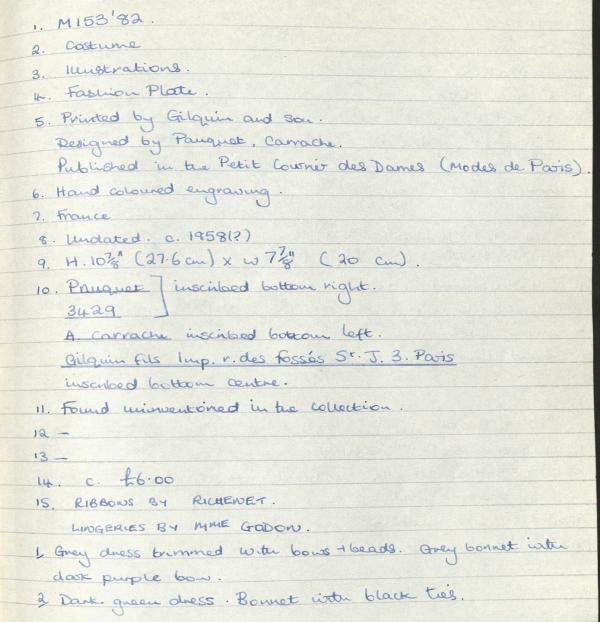 1. M153'82.
2. Costume
3. Illustrations.
4. Fashion Plate.
5. Printed by Gilquin and Son.
Designed by Pauquet, Carrache.
Published in the Petit Courrier des Dames (Modes de Paris).
6. Hand coloured engraving.
7. France
8. Undated. c. 1958(?)
9. H. 10 7/8" (27.6 cm) x W 7 7/8" (20 cm).
10. Pauquet ] inscribed bottom right.
3429
A. Carrache inscribed bottom left.
Gilquin fils Imp. r. des fossés St. J. 3. Paris
inscribed bottom centre.
11. Found uninventoried in the collection.
12 -
13 -
14. c. £6.00
15. RIBBONS BY RICHENET.
LINGERIES BY MME GODON.
1. Grey dress trimmed with bows + beads. Grey bonnet with
dark purple bow.
2. Dark green dress. Bonnet with black ties.